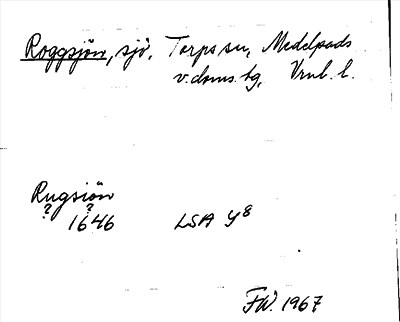 Roggsjön, sjö, Torps sn, Medelpads
v. doms. hg, Vrnl. l.
Rugsiön
? ?
1646 LSA Y8
FW. 1967